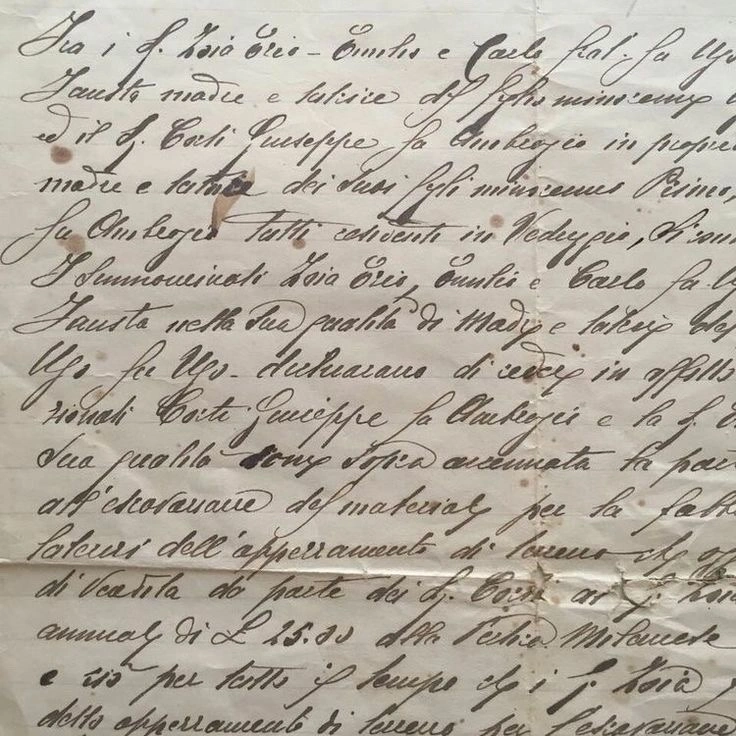 Fra i S. Isia Erio - Emilio e Carlo frat. fu Ugo
Fausta madre e tutrice dei figli minorenni
ed il S. Corti Giuseppe fu Ambrogio in proprio
madre e tutrice dei suoi figli minorenni Primo,
fu Ambrogio tutti residenti in Veduggio, si con
I summominati Isia Erio, Emilio e Carlo fu
Fausta nella sua qualità di Madre e tutrice
Ugo fu Ugo - dichiarano di cedere in affitto
zionati Corti Giuseppe fu Ambrogio e la S.
sua qualità come sopra accennata la parte
all'escavazione del materiale per la fabb
laterizi dell'apperzamento di terreno che
di vendita da parte dei S. Corti ai S. Isia
annuale di £ 25.00 alla Pertica Milanese
e ciò per tutto il tempo che i S. Isia
dello apperzamento di terreno per l'escavazione